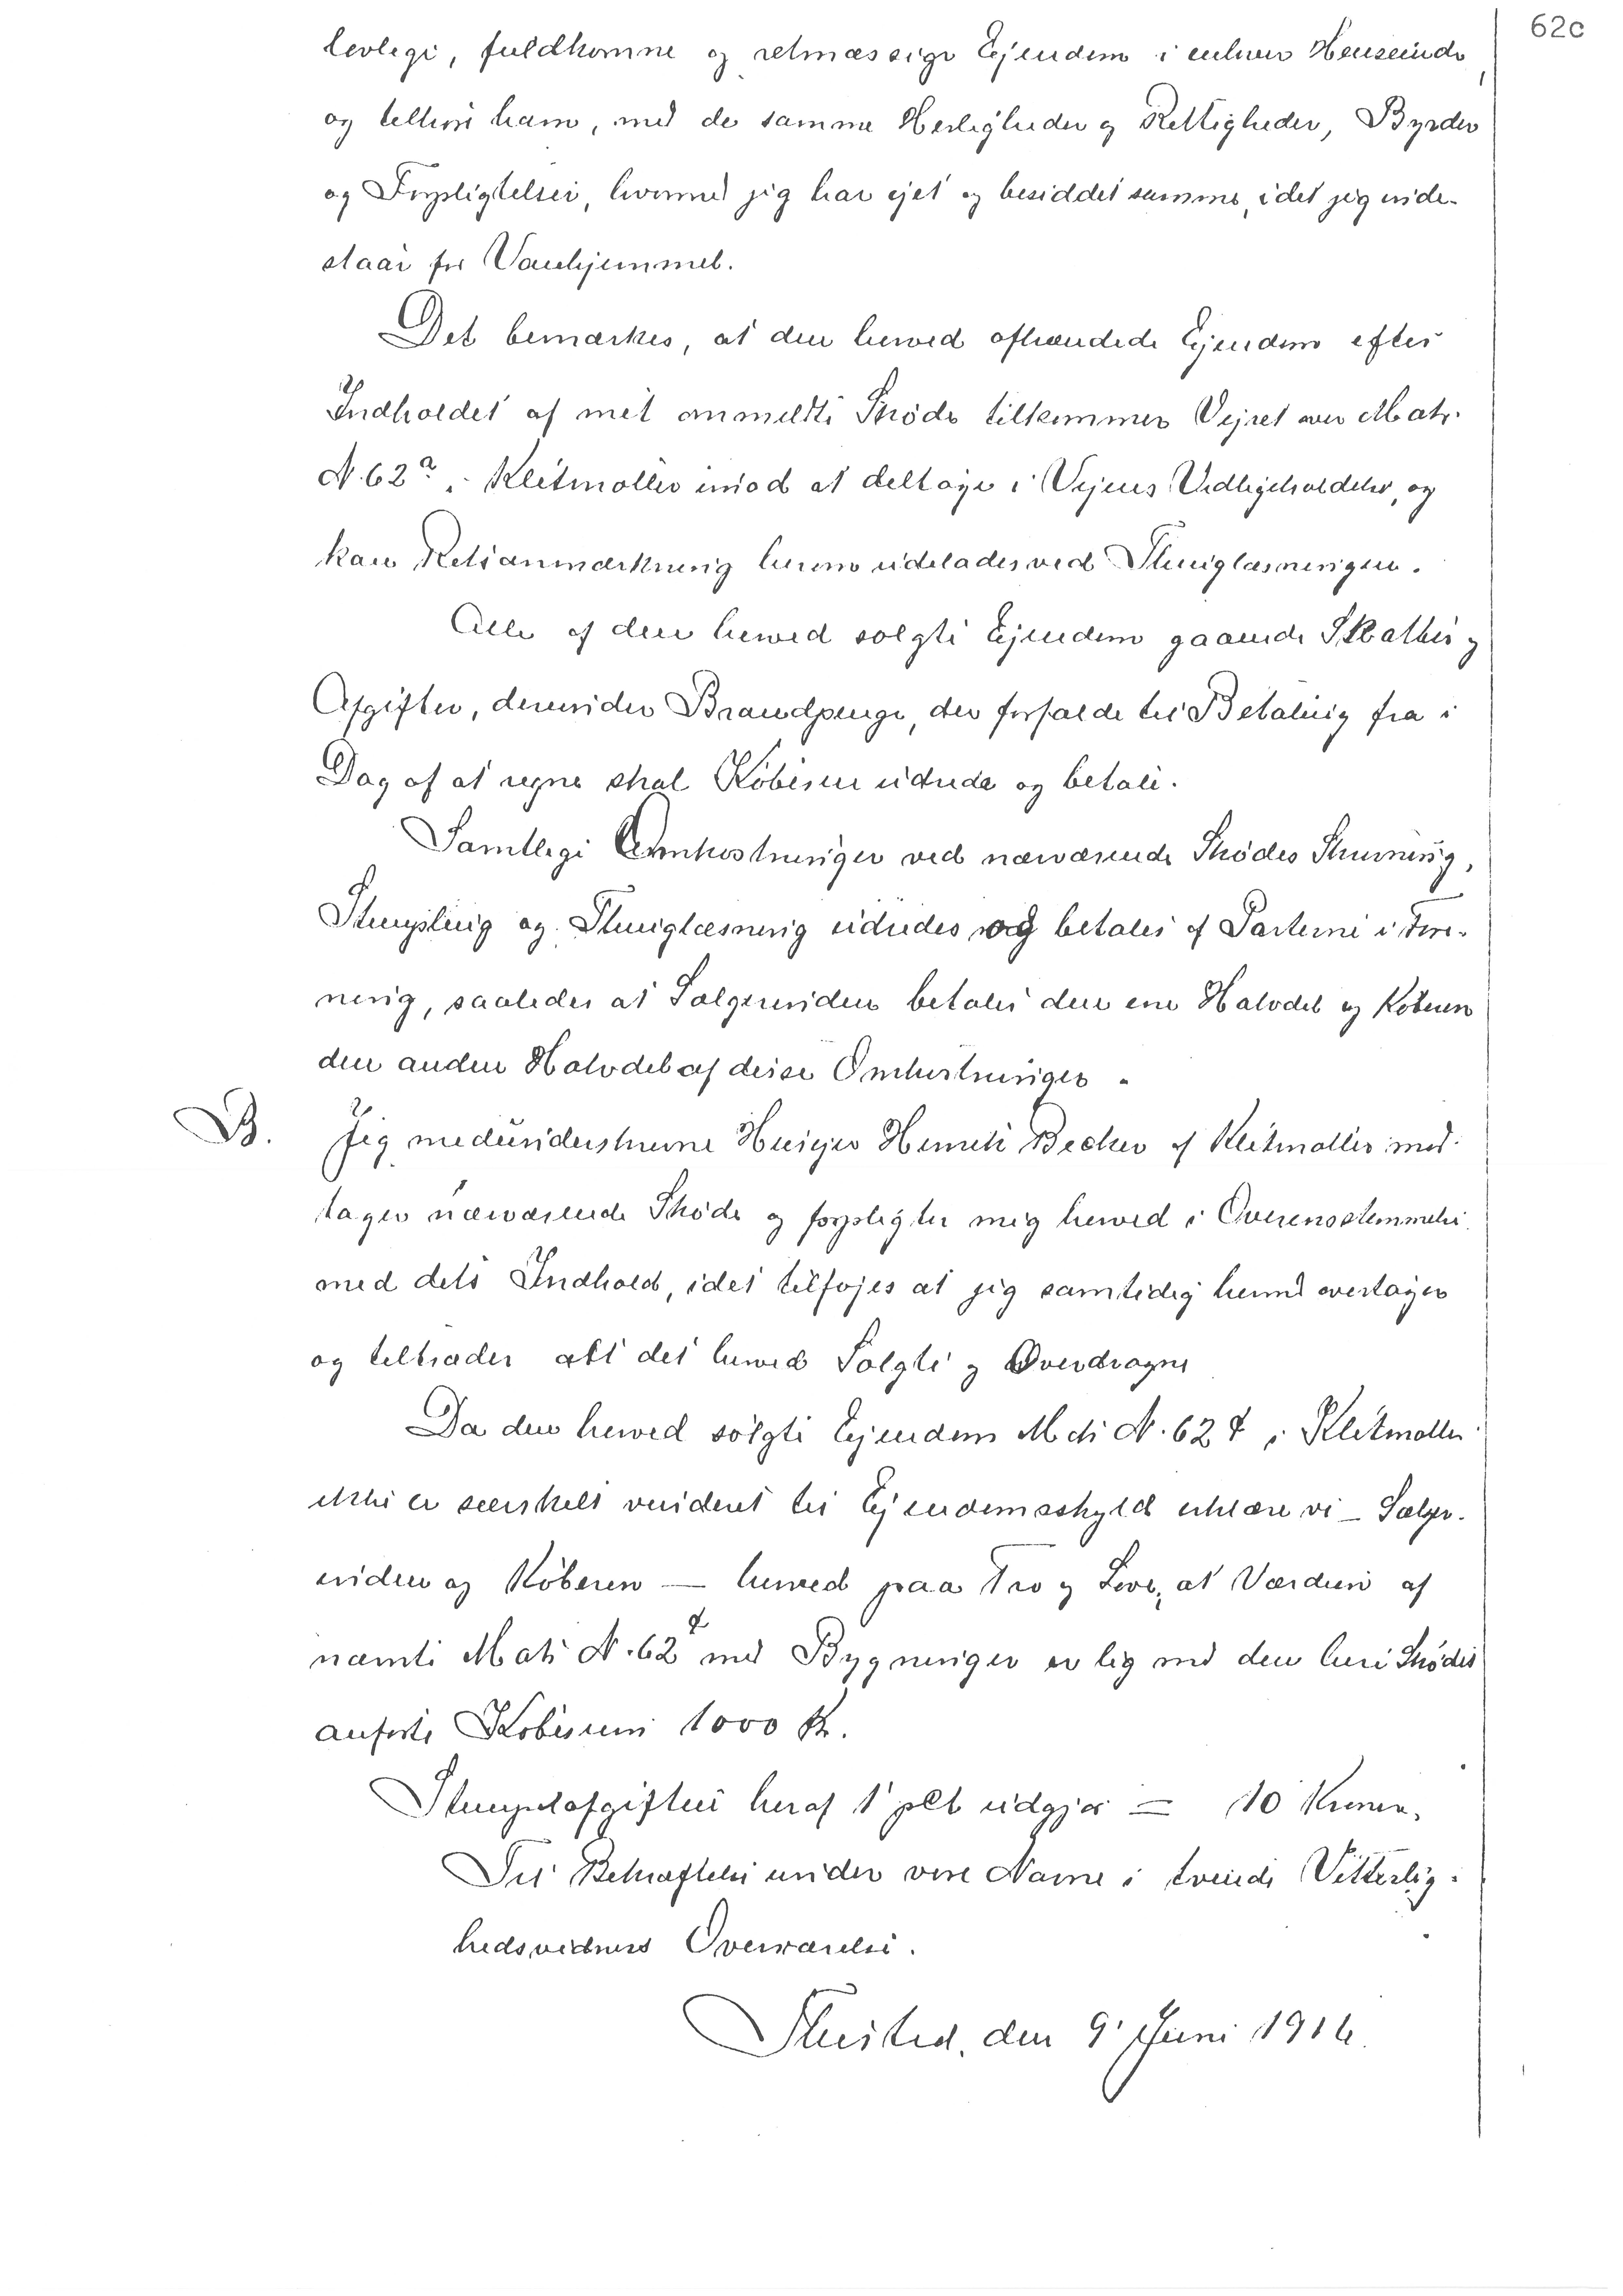 62c
lovlige, fuldkomne og retmæssige Ejendom i enhver Henseende
og tilhøre ham, med de samme Herligheder og Rettigheder, Byrder
og Forpligtelser, hvormed jeg har ejet og besiddet samme, idet jeg inde-
staar for Vanhjemmel.
Det bemærkes, at den herved afhændede Ejendom efter
Indholdet af mit anmeldte Skøde tilkommer Vejret over Matr.
N. 62a i Klitmøller imod at deltage i Vejens Vedligeholdelse, og
kan Retsanmærkning herom udelades ved Thinglæsningen.
Alle af den herved solgte Ejendom gaaende Skatter og
Afgifter, derunder Brandpenge, der forfalde til Betaling fra i
Dag af at regne skal Køberen udrede og betale.
Samtlige Omkostninger ved nærværende Skødes Skrivning,
Stempling og Thinglæsning udredes og betales af Parterne i Fore-
ning, saaledes at Sælgerinden betaler den ene Halvdel og Køberen
den anden Halvdel af disse Omkostninger.
B. Jeg medunderskrevne Henrik Becker af Klitmøller mod-
tager nærværende Skøde og forpligter mig herved i Overensstemmelse
med dets Indhold, idet tilføjes at jeg samtidig hermed overtager
og tiltræder alt det herved Solgte og Overdragne
Da den herved solgte Ejendom Matr N. 62 f i Klitmøller
ikke er særskilt vurderet til Ejendomsskyld erklære vi – Sælger-
inden og Køberen — herved paa Tro og Love, at Værdien af
nævnte Matr N. 62 f med Bygninger er lig med den her i Skødet
anførte Købesum 1000 Kr.
Stempelafgiften heraf 1 pCt udgjør = 10 Kroner.
Til Bekræftelse under vore Navne i tvende Vitterlig-
hedsvidners Overværelse.
Thisted, den 9' Juni 1916.